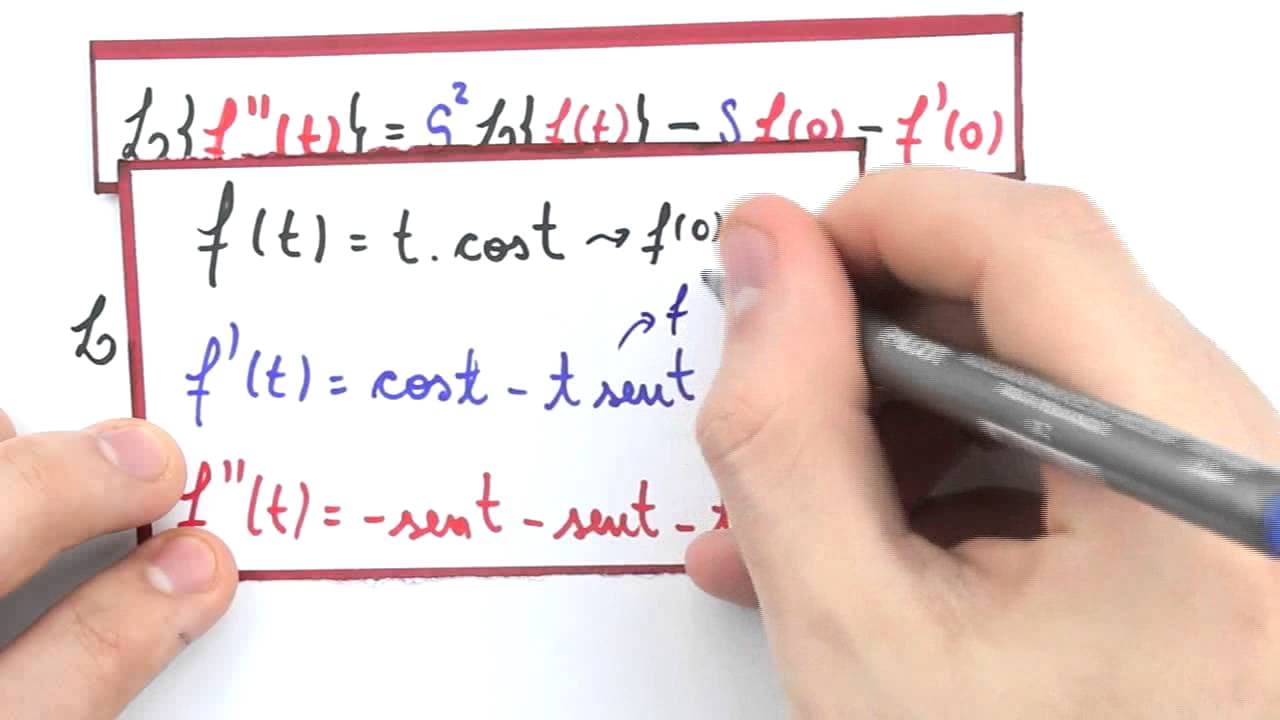 L{f''(t)} = S² L{f(t)} - S f(0) - f'(0)
f(t) = t . cost → f(0)
L
→ f
f'(t) = cost - t sent
f''(t) = -sent - sent -